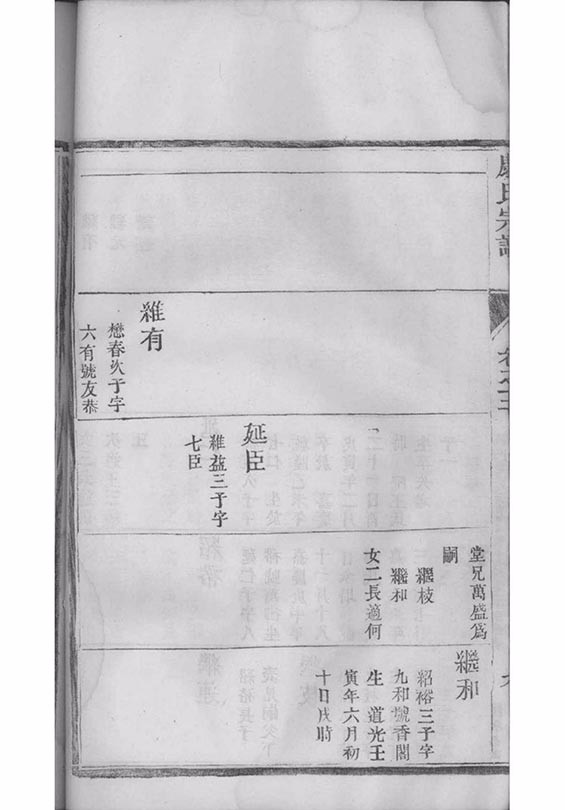 氏宗譜
維有
懋春次子字
六有號友恭
延臣
維益三子字
七臣
堂兄萬盛爲
嗣
繼枝
繼和
女二長適何
繼和
紹裕三子字
九和號香閣
生 道光壬
寅年六月初
十日戌時